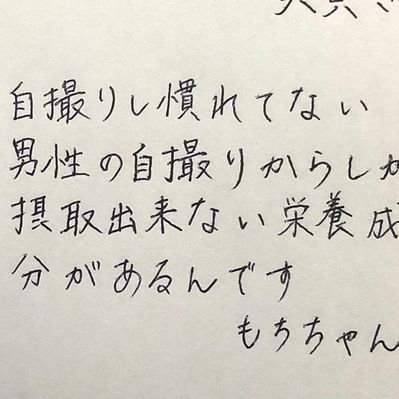 自撮りし慣れてない
男性の自撮りからしか
摂取出来ない栄養成
分があるんです
もちちゃん